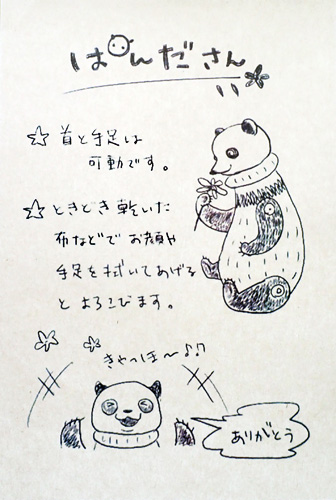 ぱんださん
☆首と手足は
可動です。
☆ときどき乾いた
布などでお顔や
手足を拭いてあげる
とよろこびます。
きゃっほ〜♪♪
ありがとう